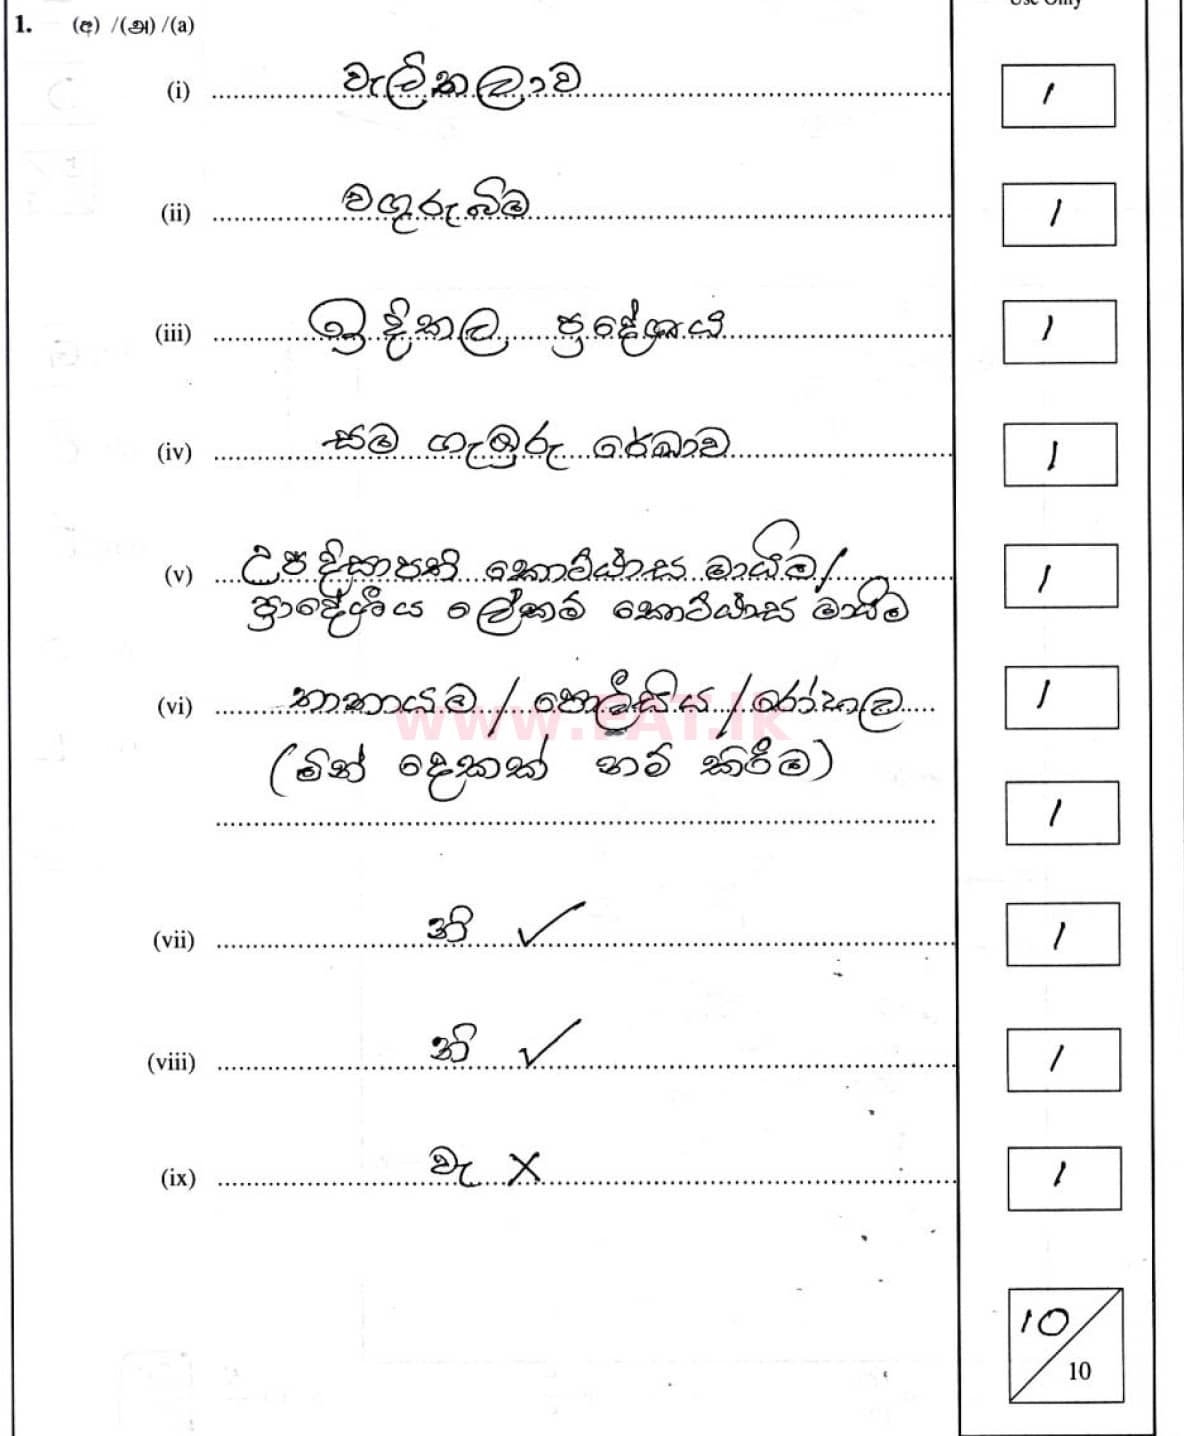 Use Only
1. (අ) /(அ) /(a)
(i) වැලිකලාව 1
(ii) වගුරුබිම 1
(iii) ඉදිකල ප්‍රදේශය 1
(iv) සම ගැඹුරු රේඛාව 1
(v) උපදිසාපති කොට්ඨාස මායිම / 1
ප්‍රාදේශීය ලේකම් කොට්ඨාස මායිම
(vi) තානායම / පොලීසිය / රෝහල 1
www.PAT.lk
(මින් දෙකක් නම් කිරීම)
1
(vii) නි ✓ 1
(viii) නි ✓ 1
(ix) වැ X 1
10
10